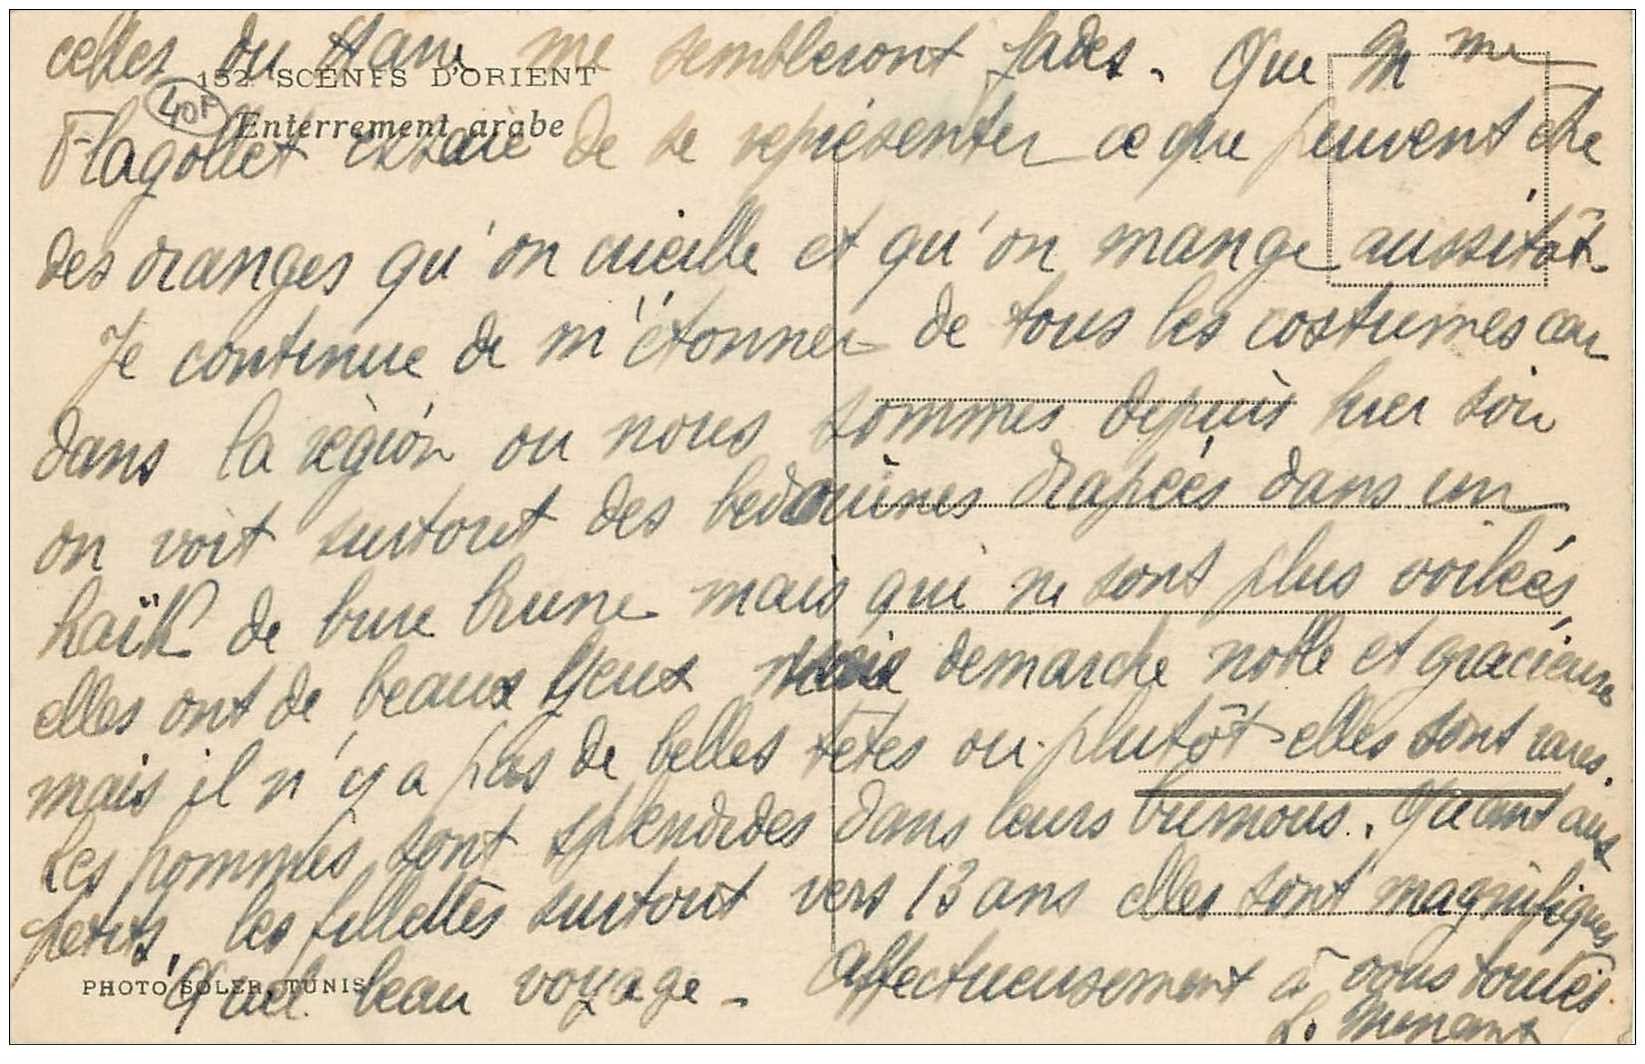 celles du Mans me sembleront fades. Que Mme
152 SCÈNES D'ORIENT
40F
Enterrement arabe
Flagollet essaie de se représenter ce que peuvent être
des oranges qu'on cueille et qu'on mange aussitôt.
Je continue de m'étonner de tous les costumes car
dans la région ou nous sommes depuis hier soir
on voit surtout des bedouines drapées dans un
haïk de bure brune mais qui ne sont plus voilées,
elles ont de beaux yeux demarche noble et gracieuse
mais il n'y a pas de belles têtes ou plutôt elles sont rares.
Les hommes sont splendides dans leurs burnous. Quant aux
petits, les fillettes surtout vers 13 ans elles sont magnifiques
Quel beau voyage - Affectueusement à vous toutes
PHOTO SOLER, TUNIS
L. Menant